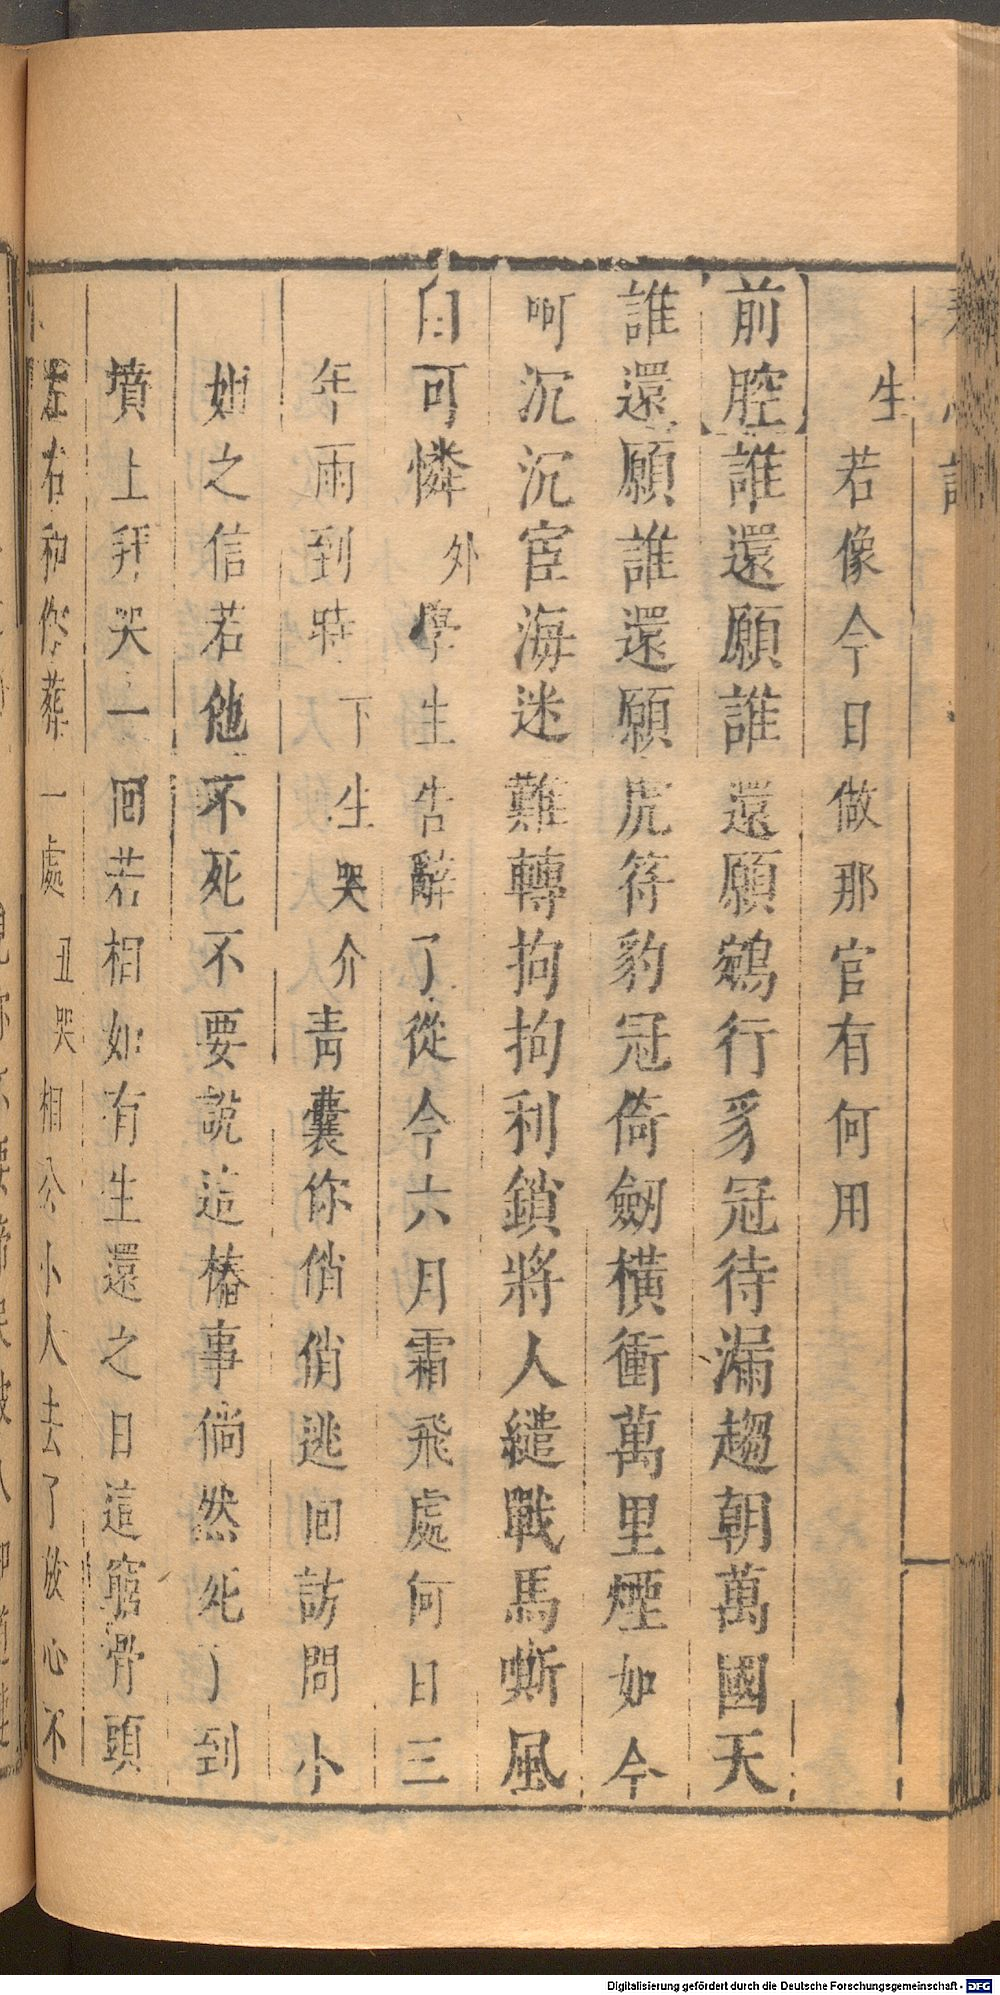 生若像今日做那官有何用
前腔誰還願誰還願誰還願鵷行豸冠待漏趨朝萬國天
誰還願誰還願虎符豹冠倚劒橫衝萬里煙如今
啊沉沉宦海迷難轉拘拘利鎖將人繾戰馬嘶風
自可憐外學生告辭了從今六月霜飛處何日三
年雨到時下生哭介青囊你俏俏逃回訪問小
姐之信若他不死不要說這樁事倘然死了到
墳上拜哭一回若相如有生還之日這窮骨頭
左右和你葬一處丑哭相公小人去了放心不
Digitalisierung gefördert durch die Deutsche Forschungsgemeinschaft - DFG